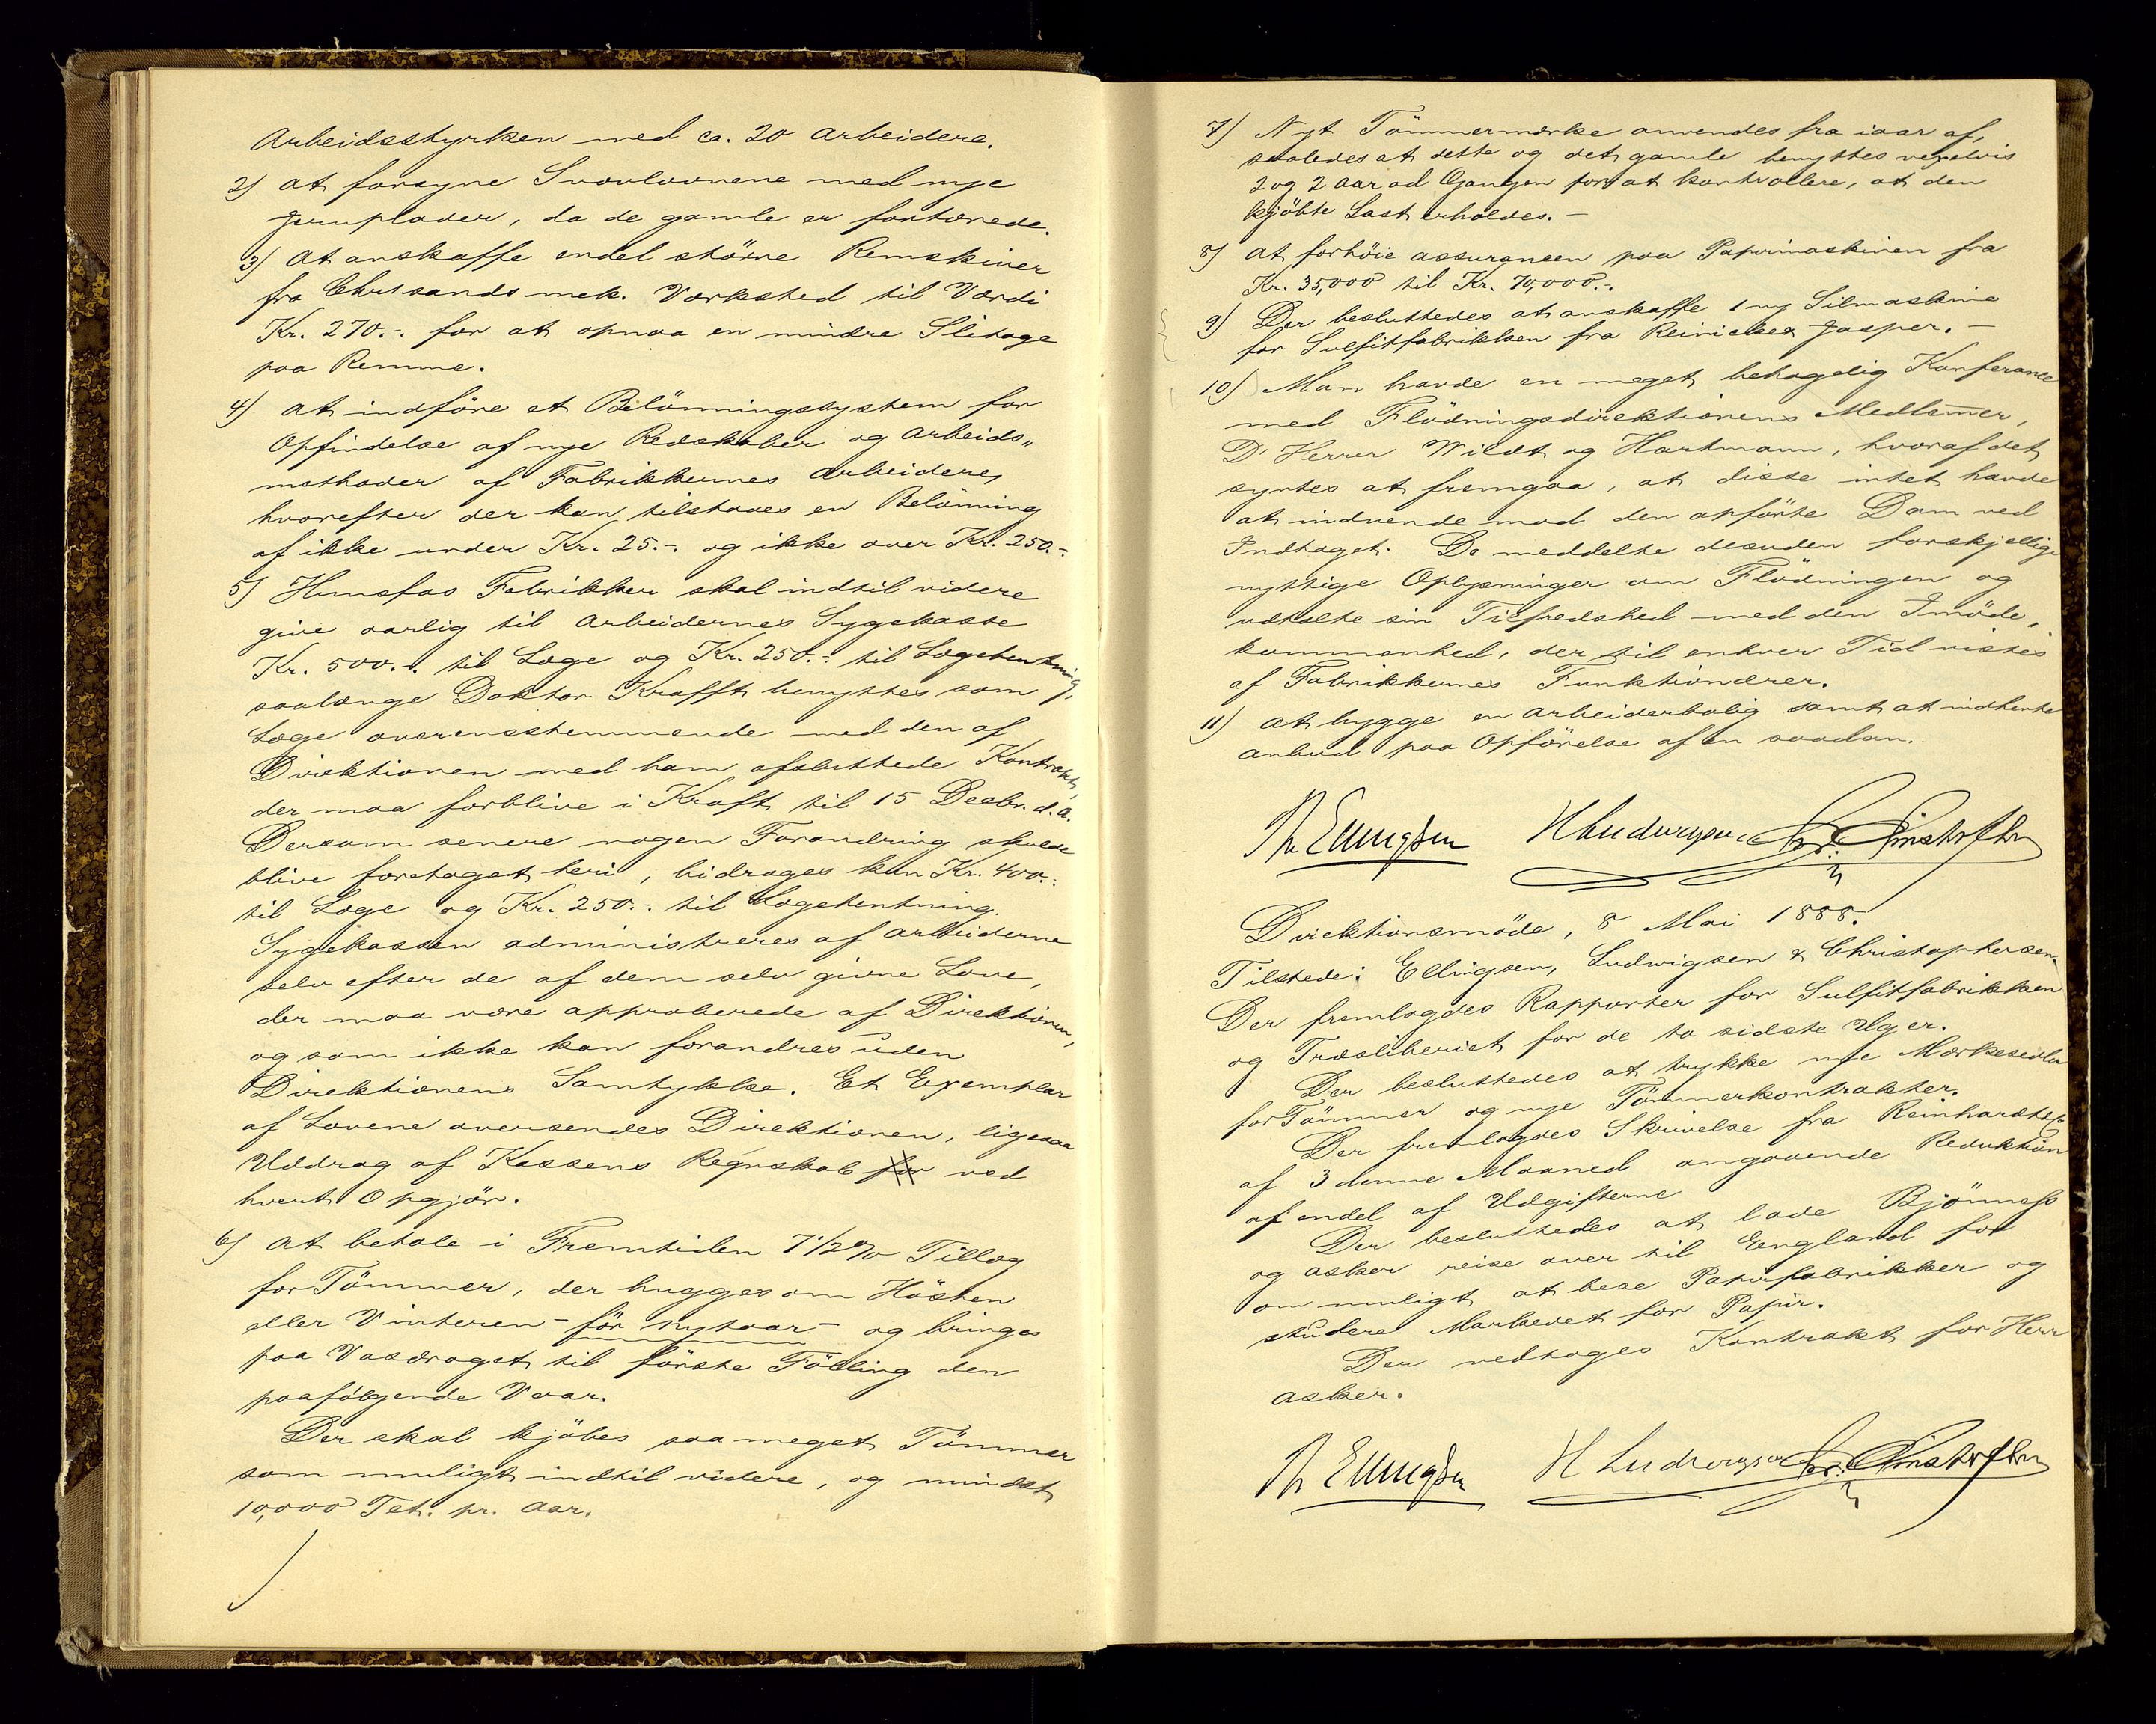 Arbeidsstyrken med ca. 20 Arbeidere.
2) At forsyne Svovlovnene med nye
Jernplader, da de gamle er fortærede.
3) At anskaffe endel större Remskiver
fra Christsands mek. Værksted til Værdi
Kr. 270.-. for at opnaa en mindre Slitage
paa Remme.
4) At indföre et Belönningssystem for
Opfindelse af nye Redskaber og Arbeids„
methoder af Fabrikkernes Arbeidere,
hvorefter der kan tilstaaes en Belönning
af ikke under Kr. 25.-. og ikke over Kr. 250.-
5) Hunsfos Fabrikker skal indtil videre
give aarlig til Arbeidernes Sygekasse
Kr. 500.-. til Læge og Kr. 250.-. til Lægehentning,
saalænge Doktor Krafft benyttes som
Læge overensstemmende med den af
Direktionen med ham afsluttede Kontrakt,
der maa forblive i Kraft til 15 Decbr. d. a.
Dersom senere nogen Forandring skulde
blive foretaget heri, bidrages kun Kr. 400.-.
til Læge og Kr. 250.-. til Lægehentning.
Sygekassen administreres af Arbeiderne
selv efter de af dem selv givne Love,
der maa være approberede af Direktionen,
og som ikke kan forandres uden
Direktionens Samtykke. Et Exemplar
af Lovene oversendes Direktionen, ligesaa
Uddrag af Kassens Regnskab for ved
hvert Opgjör.
6) At betale i Fremtiden 7 1/2 % Tillæg
for Tömmer, der hugges om Hösten
eller Vinteren - för Nytaar - og bringes
paa Vasdraget til förste Flödning den
paafölgende Vaar.
Der skal kjöbes saa meget Tömmer
som muligt indtil videre, og mindst
10,000 Tet. pr. Aar.
7) Nyt Tömmermærke anvendes fra iaar af,
saaledes at dette og det gamle benyttes vexelvis
2 og 2 Aar ad Gangen for at kontrollere, at den
kjöbte Last erholdes. -
8) At forhöie Assurancen paa Papirmaskinen fra
Kr. 35,000 til Kr. 70,000.-.
9) Der besluttedes at anskaffe 1 ny Silmaskine
for Sulfitfabrikken fra Reinicke & Jasper. -
10) Man havde en meget behagelig Konferance
med Flödningsdirektionens Medlemmer,
D' Herrer Wildt og Hartmann, hvoraf det
syntes at fremgaa, at disse intet havde
at indvende mod den opförte Dam ved
Indtaget. De meddelte desuden forskjellige
nyttige Oplysninger om Flödningen og
udtalte sin Tilfredshed med den Imöde„
kommenhed, der til enhver Tid vistes
af Fabrikkernes Funktionærer.
11) At bygge en Arbeiderbolig samt at indhente
Anbud paa Opförelse af en saadan.
Th Ellingsen H Ludwigsen Chr. Christophersen
Direktionsmöde, 8 Mai 1888.
Tilstede: Ellingsen, Ludwigsen & Christophersen.
Der fremlagdes Rapporter for Sulfitfabrikken
og Træsliberiet for de to sidste Uger.
Der besluttedes at trykke nye Mærkesedler
for Tömmer og nye Tömmerkontrakter.
Der fremlagdes Skrivelse fra Reinhardt &Co
af 3 denne Maaned angaaende Reduktion
af endel af Udgifterne
Der besluttedes at lade Bjönness
og Asker reise over til England for
om muligt at bese Papirfabrikker og
studere Markedet for Papir.
Der vedtoges Kontrakt for Herr
Asker.
Th Ellingsen H Ludwigsen Chr. Christophersen